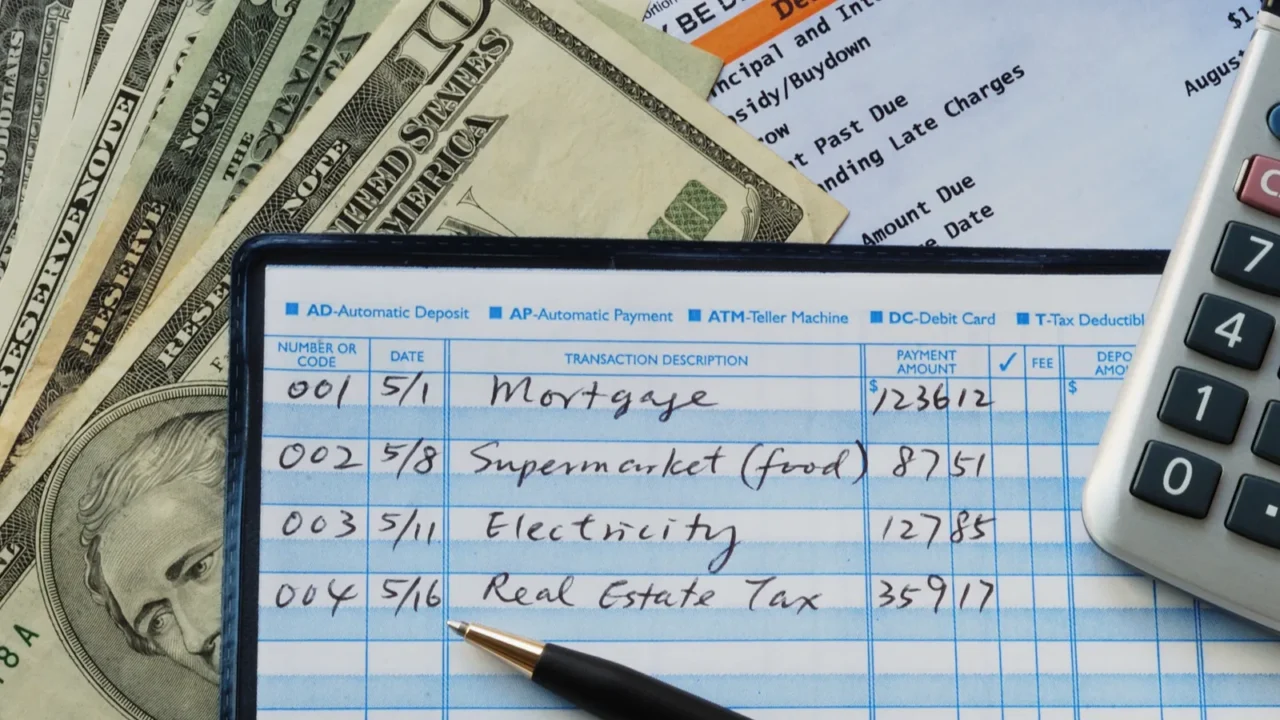 DOLLARS
RESERVE NOTE
RESERVE NOTE
THE
STATES
10
NOTE
UNITED STATES
AMERICA
8 A
BE
Principal and
Subsidy/Buydown
Past Due
Late Charges
Amount Due
Date
$1
August
AD-Automatic Deposit AP-Automatic Payment ATM-Teller Machine DC-Debit Card T-Tax Deductibl
NUMBER OR CODE DATE TRANSACTION DESCRIPTION PAYMENT AMOUNT ✓ FEE DEPO AMOU
001 5/1 Mortgage $ 1236 12 $
002 5/8 Supermarket (food) 87 51
003 5/11 Electricity 127 85
004 5/16 Real Estate Tax 359 17
C
7
4
1
0 .